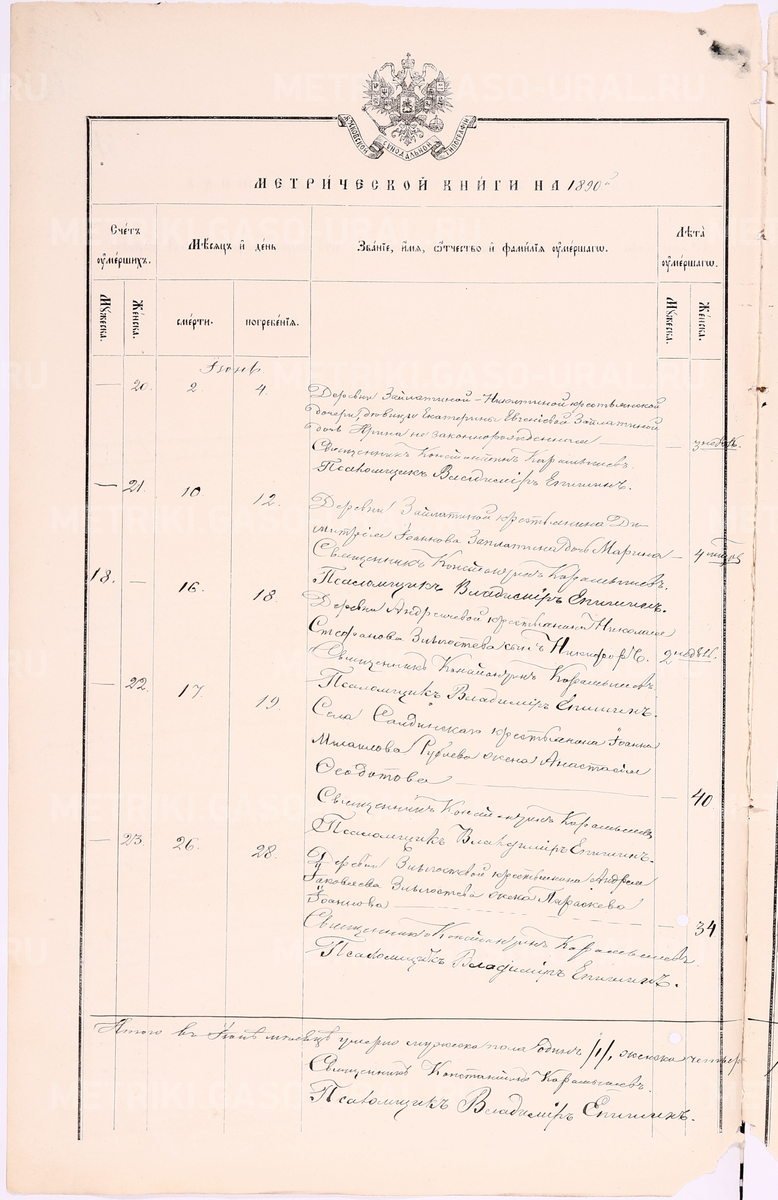 METRIKI.GASO-URAL.RU
МОСКОВСКОЙ СѴНОДАЛЬНОЙ ТИПОГРАФІИ
МЕТРИ́ЧЕСКОЙ КНИ́ГИ НА 1890 г.
Сче́тъ ᲂу҆ме́ршихъ.
Мѣ́сяцъ и҆ де́нь
Зва́нїе, и҆́мя, ѻ҆́тчество и҆ фами́лїя ᲂу҆ме́ршагѡ.
Лѣ́та ᲂу҆ме́ршагѡ.
Мꙋ́жеска.
Же́нска.
сме́рти.
погребе́нїя.
Мꙋ́жеска.
Же́нска.
Іюнь
— 20. 2. 4. Деревни Заплатиной-Никитиной крестьянской
дочери, девицы Екатерины Евгениевой Заплатиной
дочь Ирина незаконнорожденная — — 3 недѣль.
Священникъ Константинъ Карамышевъ.
Псаломщикъ Владиміръ Епишинъ.
— 21. 10 12. Деревни Заплатиной крестьянина Ди-
митрія Іоаннова Заплатина дочь Марина — 4
Священникъ Константинъ Карамышевъ.
Псаломщикъ Владиміръ Епишинъ.
18. — 16. 18. Деревни крестьянина Николая
Стефанова сынъ Никифоръ. 2 недѣль.
Священникъ Константинъ Карамышевъ.
Псаломщикъ Владиміръ Епишинъ.
— 22. 17. 19. Села Салдинскаго крестьянина Іоанна
Михаилова жена Анастасія
Ѳеодотова — — 40
Священникъ Константинъ Карамышевъ
Псаломщикъ Владиміръ Епишинъ.
— 23. 26. 28. Деревни крестьянина Андрея
Іаковлева жена Параскева
Іоаннова — — 34
Священникъ Константинъ Карамышевъ
Псаломщикъ Владиміръ Епишинъ.
Итого въ Іюнѣ мѣсяцѣ умерло мужеска пола одинъ /1/, женска четыре
Священникъ Константинъ Карамышевъ.
Псаломщикъ Владиміръ Епишинъ.